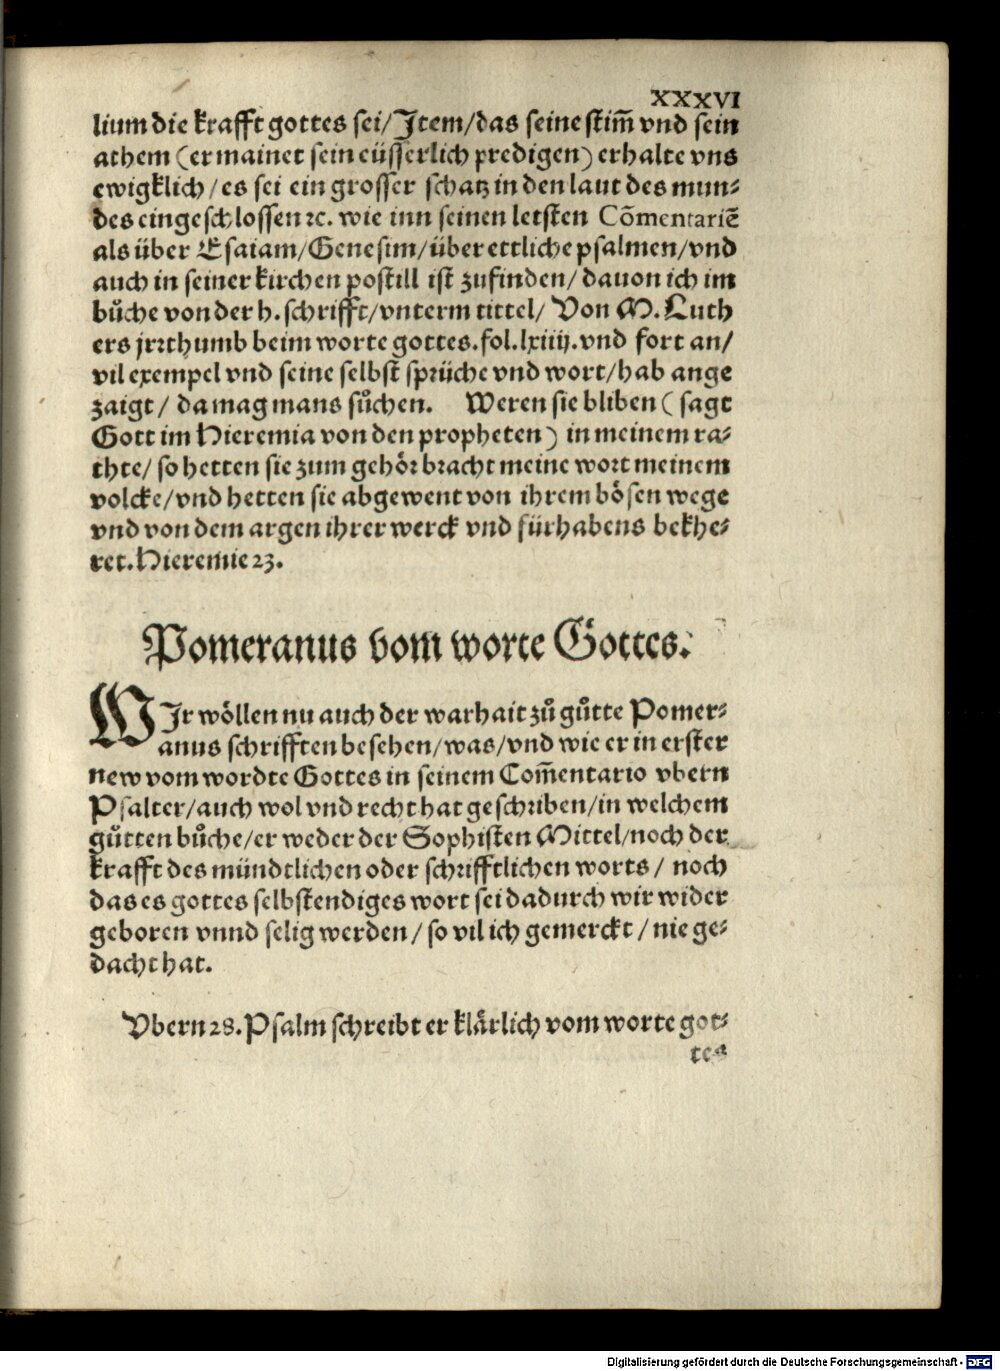 XXXVI
lium die krafft gottes sei/Jtem/das seine stim̃ vnd sein
athem (er mainet sein eüsserlich predigen) erhalte vns
ewigklich/es sei ein grosser schatz in den laut des mun⸗
des eingeschlossen ꝛc. wie inn seinen letsten Com̃entariẽ
als über Esaiam/Genesim/über ettliche psalmen/vnd
auch in seiner kirchen postill ist zufinden/dauon ich im
bůche von der h. schrifft/vnterm tittel/ Von M. Luth
ers jrrthumb beim worte gottes.fol.lxiiij.vnd fort an/
vil exempel vnd seine selbst sprüche vnd wort/hab ange
zaigt/ da mag mans sůchen. Weren sie bliben (sagt
Gott im Hieremia von den propheten) in meinem ra⸗
thte/so hetten sie zum gehör bracht meine wort meinem
volcke/vnd hetten sie abgewent von ihrem bösen wege
vnd von dem argen ihrer werck vnd fürhabens bekhe⸗
ret. Hieremie 23.
Pomeranus vom worte Gottes.
WJr wöllen nu auch der warhait zů gůtte Pomer⸗
anus schrifften besehen/was/vnd wie er in erster
new vom wordte Gottes in seinem Com̃entario vbern
Psalter/auch wol vnd recht hat geschriben/in welchem
gůtten bůche/er weder der Sophisten Mittel/noch der
krafft des mündtlichen oder schrifftlichen worts/ noch
das es gottes selbstendiges wort sei dadurch wir wider
geboren vnnd selig werden/so vil ich gemerckt/nie ge⸗
dacht hat.
Vbern 28. Psalm schreibt er klärlich vom worte got⸗
tes
Digitalisierung gefördert durch die Deutsche Forschungsgemeinschaft - DFG